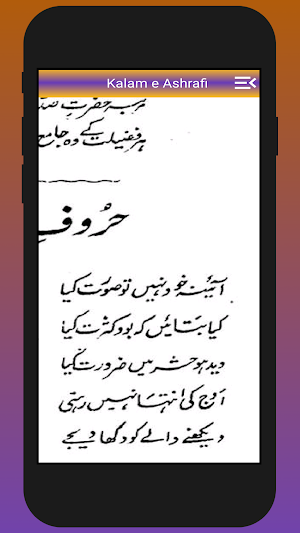 Kalam e Ashrafi
ہر فضیلت کے وہ جامع
حروفِ
آئینہ خود نہیں تو صورت کیا
کیا بتائیں کہ بود کثرت کیا
دید ہو حشر میں ضرورت کیا
اوج کی انتہا نہیں رہتی
دیکھنے والے کو دکھا دیجے